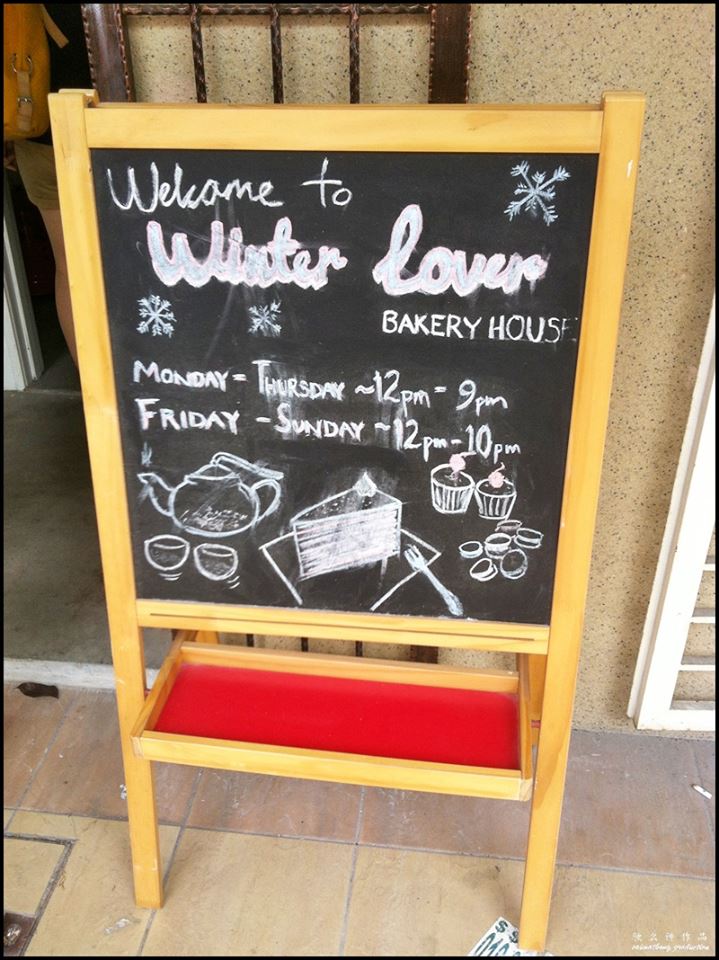 Welcome to
Winter Lover
BAKERY HOUSE
MONDAY - THURSDAY ~12pm - 9pm
FRIDAY - SUNDAY ~12pm - 10pm
$ $